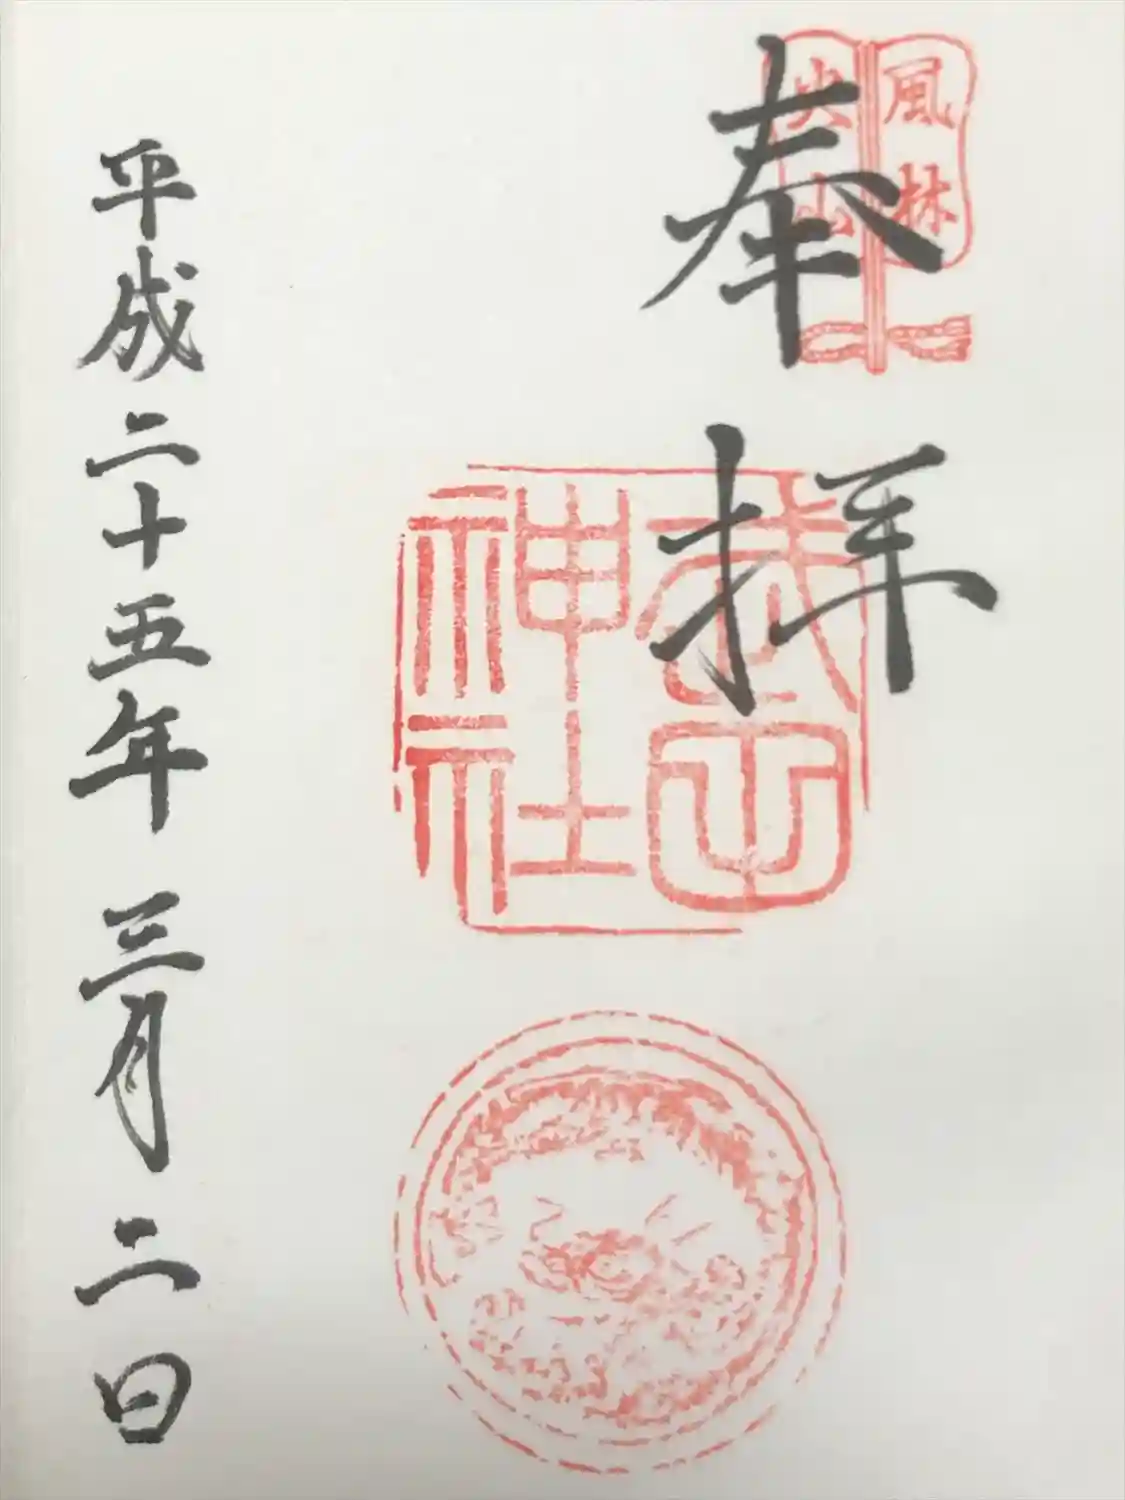 奉拝
風林
火山
武田
神社
平成二十五年三月二日